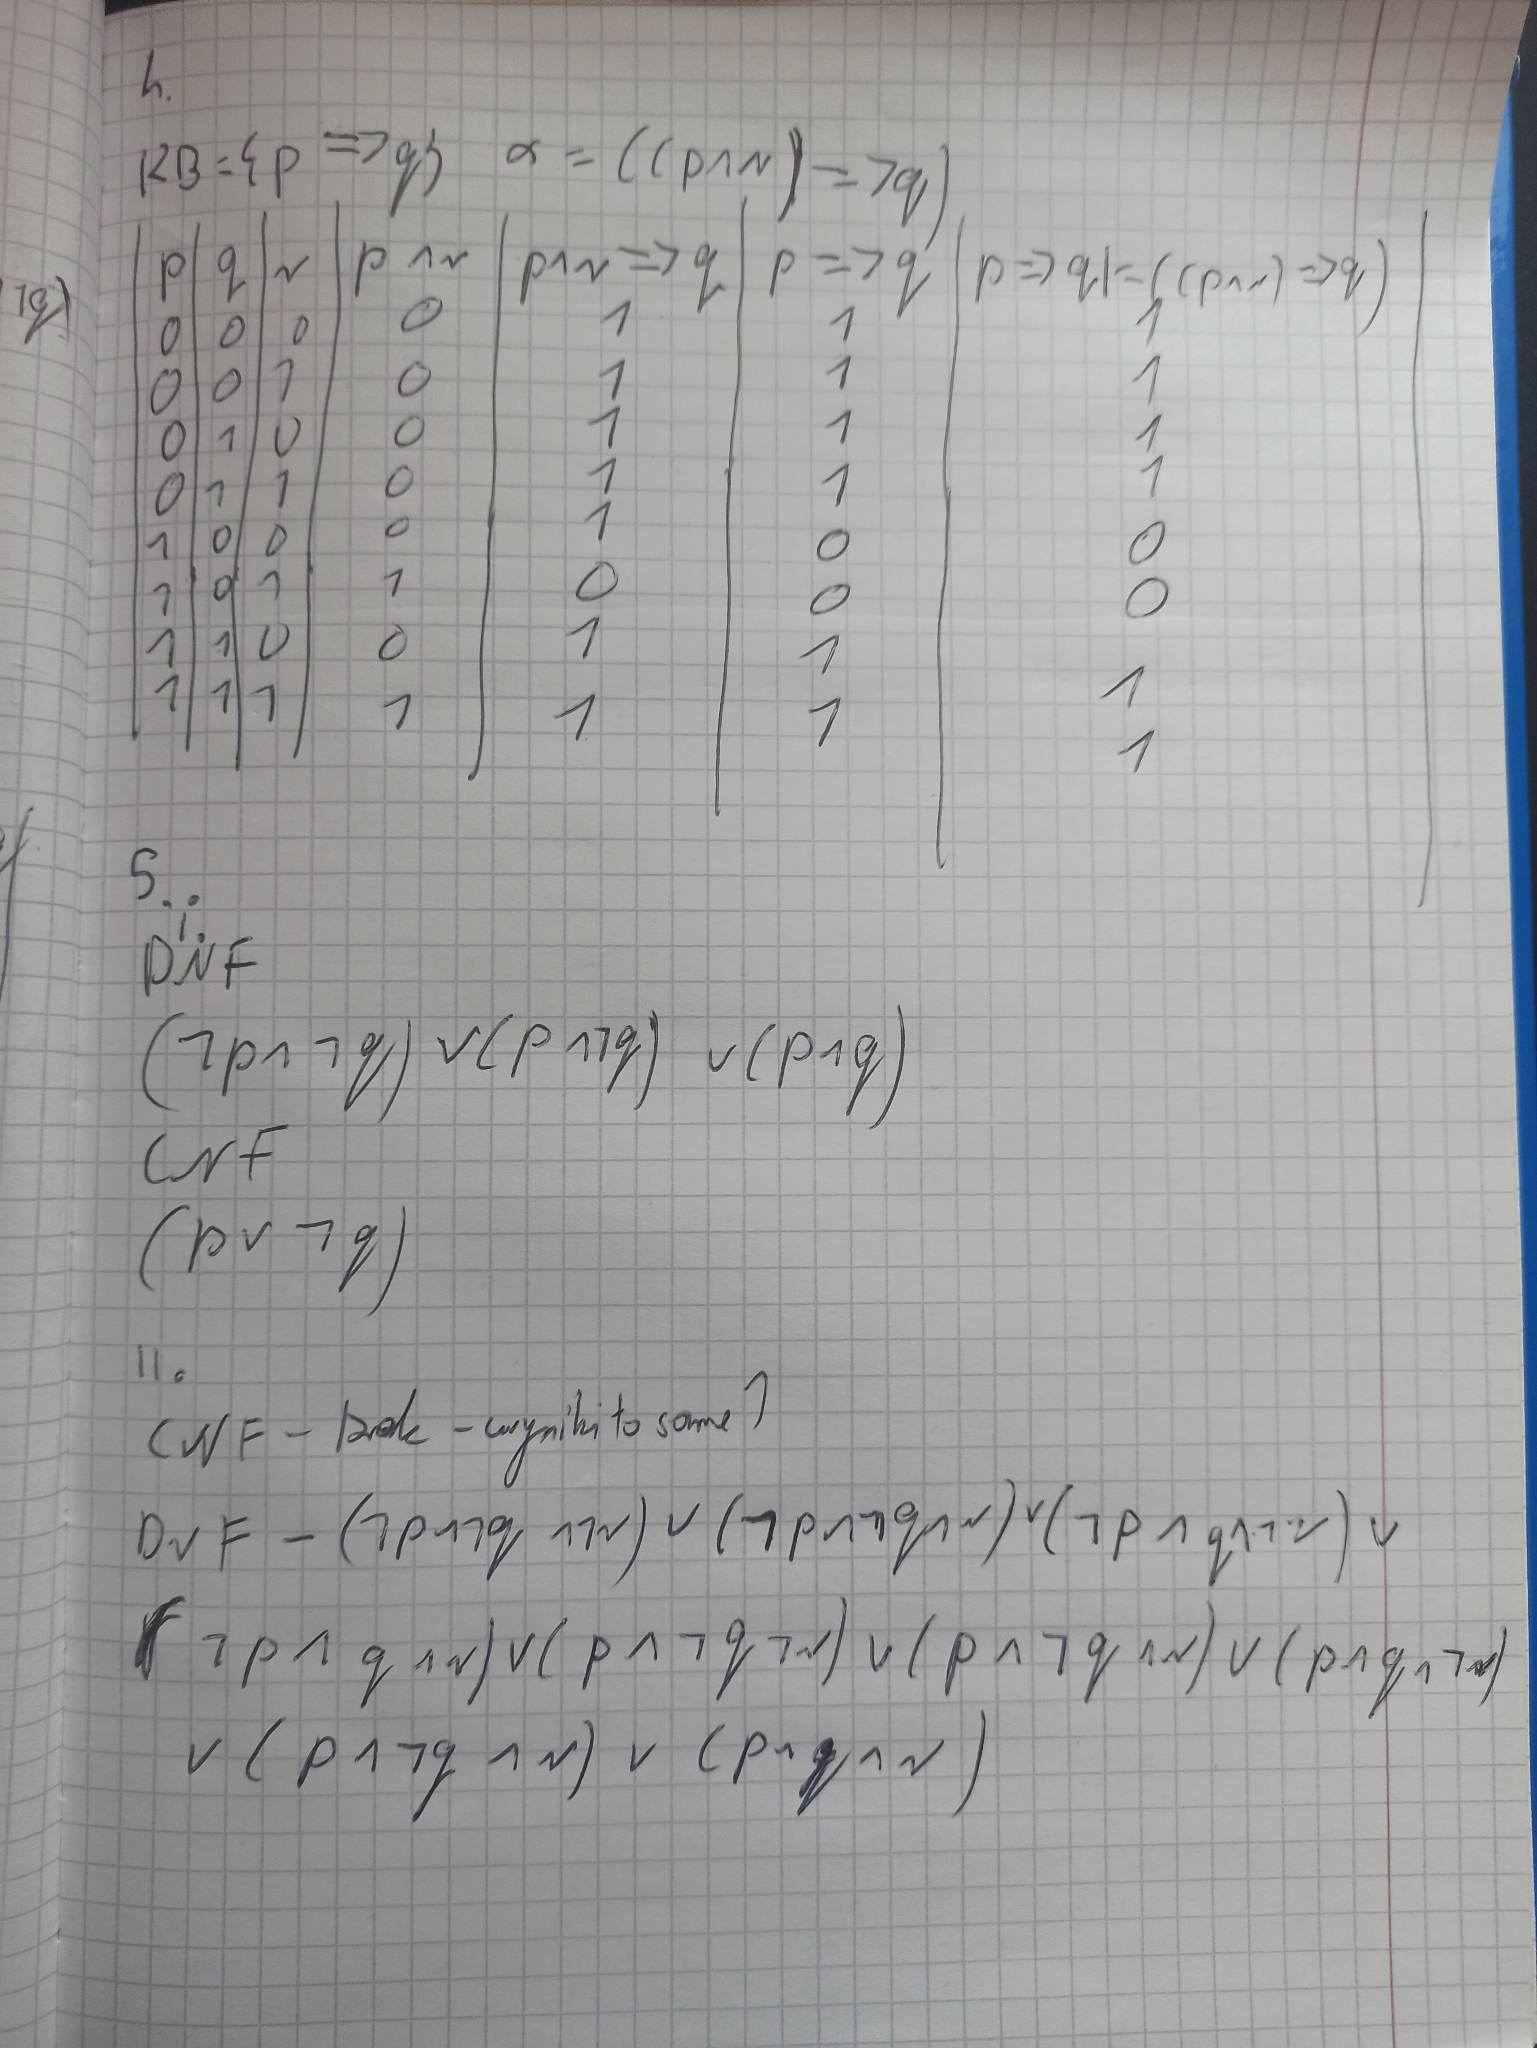 4.
KB={p => q} α = ((p∧r) => q)
|p|q|r|p∧r|p∧r => q|p => q|p => q|=((p∧r) => q)|
¬q)
0 0 0 0 1 1 1
0 0 1 0 1 1 1
0 1 0 0 1 1 1
0 1 1 0 1 1 1
1 0 0 0 1 0 0
1 0 1 1 0 0 0
1 1 0 0 1 1 1
1 1 1 1 1 1 1
5.
i.
DNF
(¬p∧¬q) ∨ (p∧¬q) ∨ (p∧q)
CNF
(p∨¬q)
ii.
CNF - brak - wyniki to same 1
DNF - (¬p∧¬q∧¬r) ∨ (¬p∧¬q∧r) ∨ (¬p∧q∧¬r) ∨
(¬p∧q∧r) ∨ (p∧¬q¬r) ∨ (p∧¬q∧r) ∨ (p∧q∧¬r)
∨ (p∧¬q∧r) ∨ (p∧q∧r)